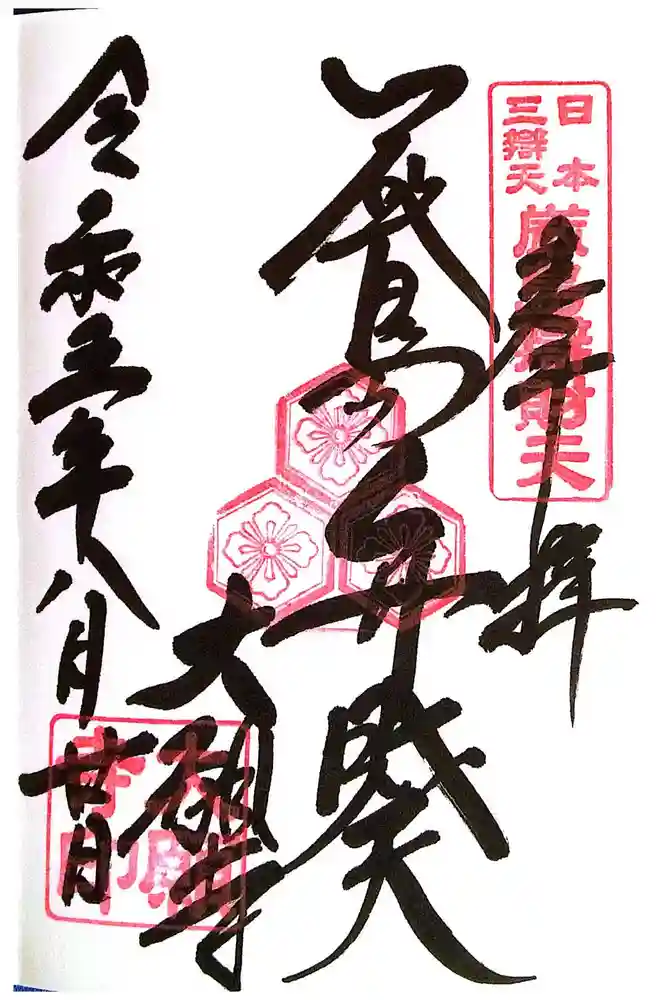 日本
三辯天
厳島辯財天
奉拝
厳島弁財天
大願寺
令和三年八月廿日
大願
寺印